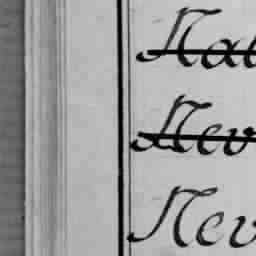 Nat
Nev
Nev